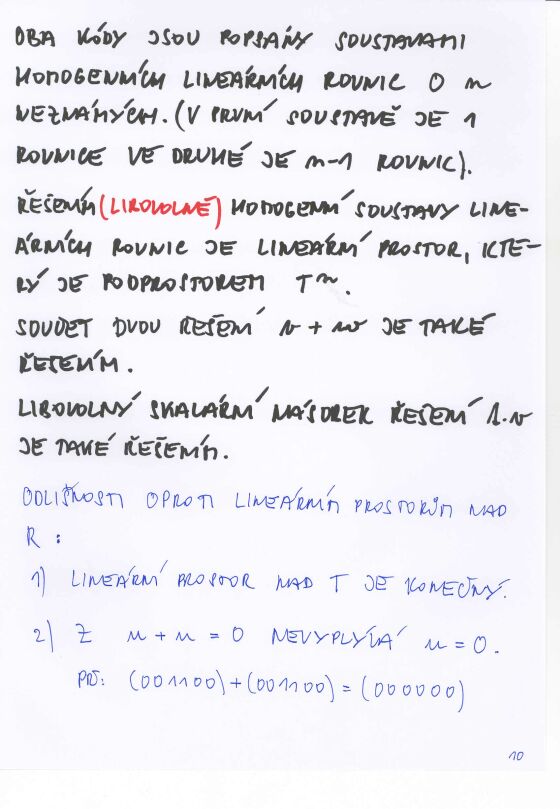 OBA KÓDY JSOU POPSÁNY SOUSTAVAMI
HOMOGENNÍCH LINEÁRNÍCH ROVNIC O n
NEZNÁMÝCH. (V PRVNÍ SOUSTAVĚ JE 1
ROVNICE VE DRUHÉ JE n-1 ROVNIC).
ŘEŠENÍM (LIBOVOLNÉ) HOMOGENNÍ SOUSTAVY LINE-
ÁRNÍCH ROVNIC JE LINEÁRNÍ PROSTOR, KTE-
RÝ JE PODPROSTOREM Tⁿ.
SOUČET DVOU ŘEŠENÍ v + w JE TAKÉ
ŘEŠENÍM.
LIBOVOLNÝ SKALÁRNÍ NÁSOBEK ŘEŠENÍ 1.v
JE TAKÉ ŘEŠENÍM.
ODLIŠNOSTI OPROTI LINEÁRNÍM PROSTORŮM NAD
R :
1) LINEÁRNÍ PROSTOR NAD T JE KONEČNÝ.
2) Z u + u = 0 NEVYPLÝVÁ u = 0.
PŘ: (001100)+(001100)=(000000)
10